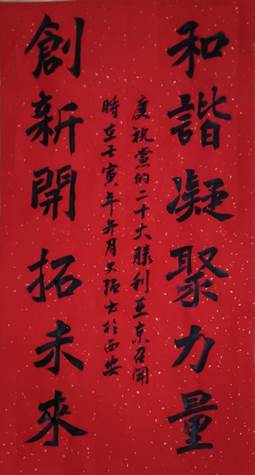 和諧凝聚力量
慶祝黨的二十大勝利在京召開
時在壬寅年 月 拓書於西安
創新開拓未來